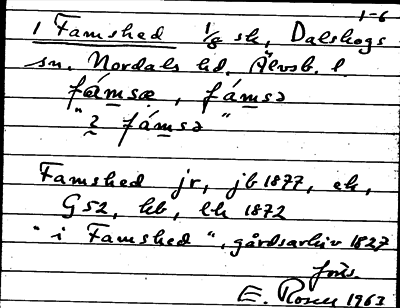 1-6
1 Famshed 1/8 sk, Dalskogs
sn. Nordals hd. Älvsb. l
fámsæ, fámsə
"2 fámsə"
Famshed jr, jb 1877, ek,
G52, kb, lk 1872
"i Famshed", gårdsarkiv 1827
E. Rosén 1963